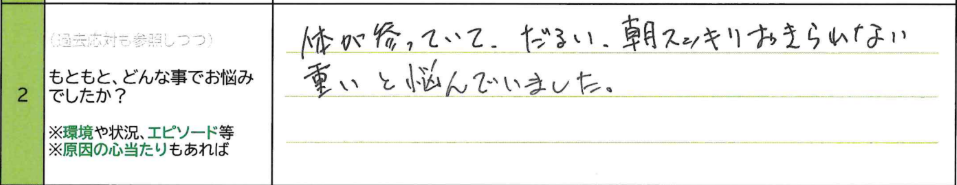 (過去応対も参照しつつ)
2
もともと、どんな事でお悩み
でしたか？
※環境や状況、エピソード等
※原因の心当たりもあれば
体が参っていて、だるい、朝スッキリおきられない
重いと悩んでいました。